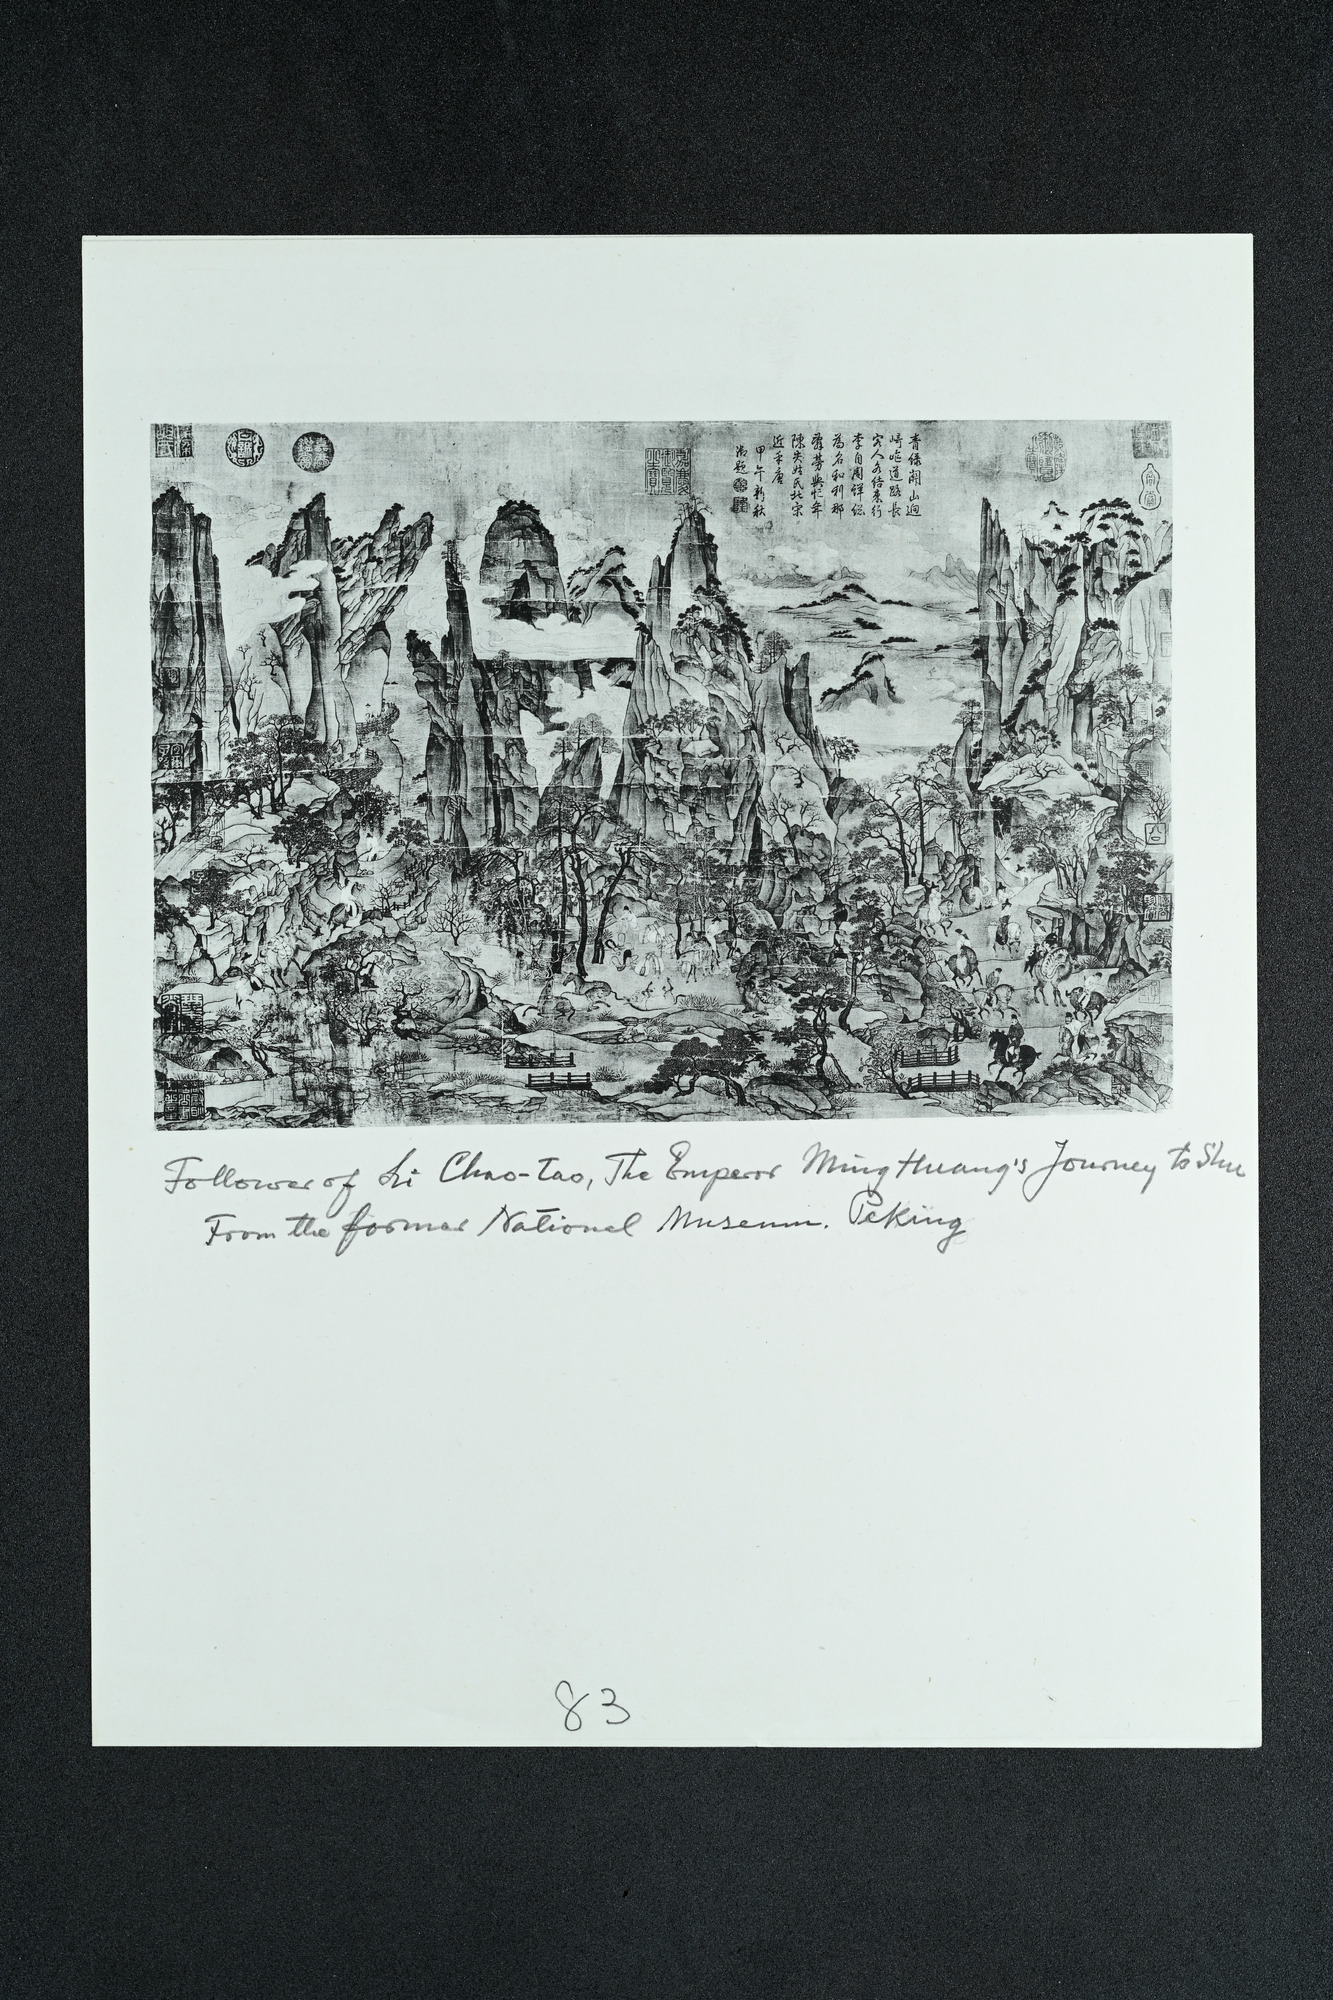 青綠關山迥
崎嶇道路長
客人各結束行
李自周詳總
為名和利那
辭勞與忙年
陳失姓氏北宋
近乎唐
甲午新秋
御題
嘉慶御覽之寶
Follower of Li Chao-tao, The Emperor Ming Huang's Journey to Shu
From the former National Museum. Peking
83